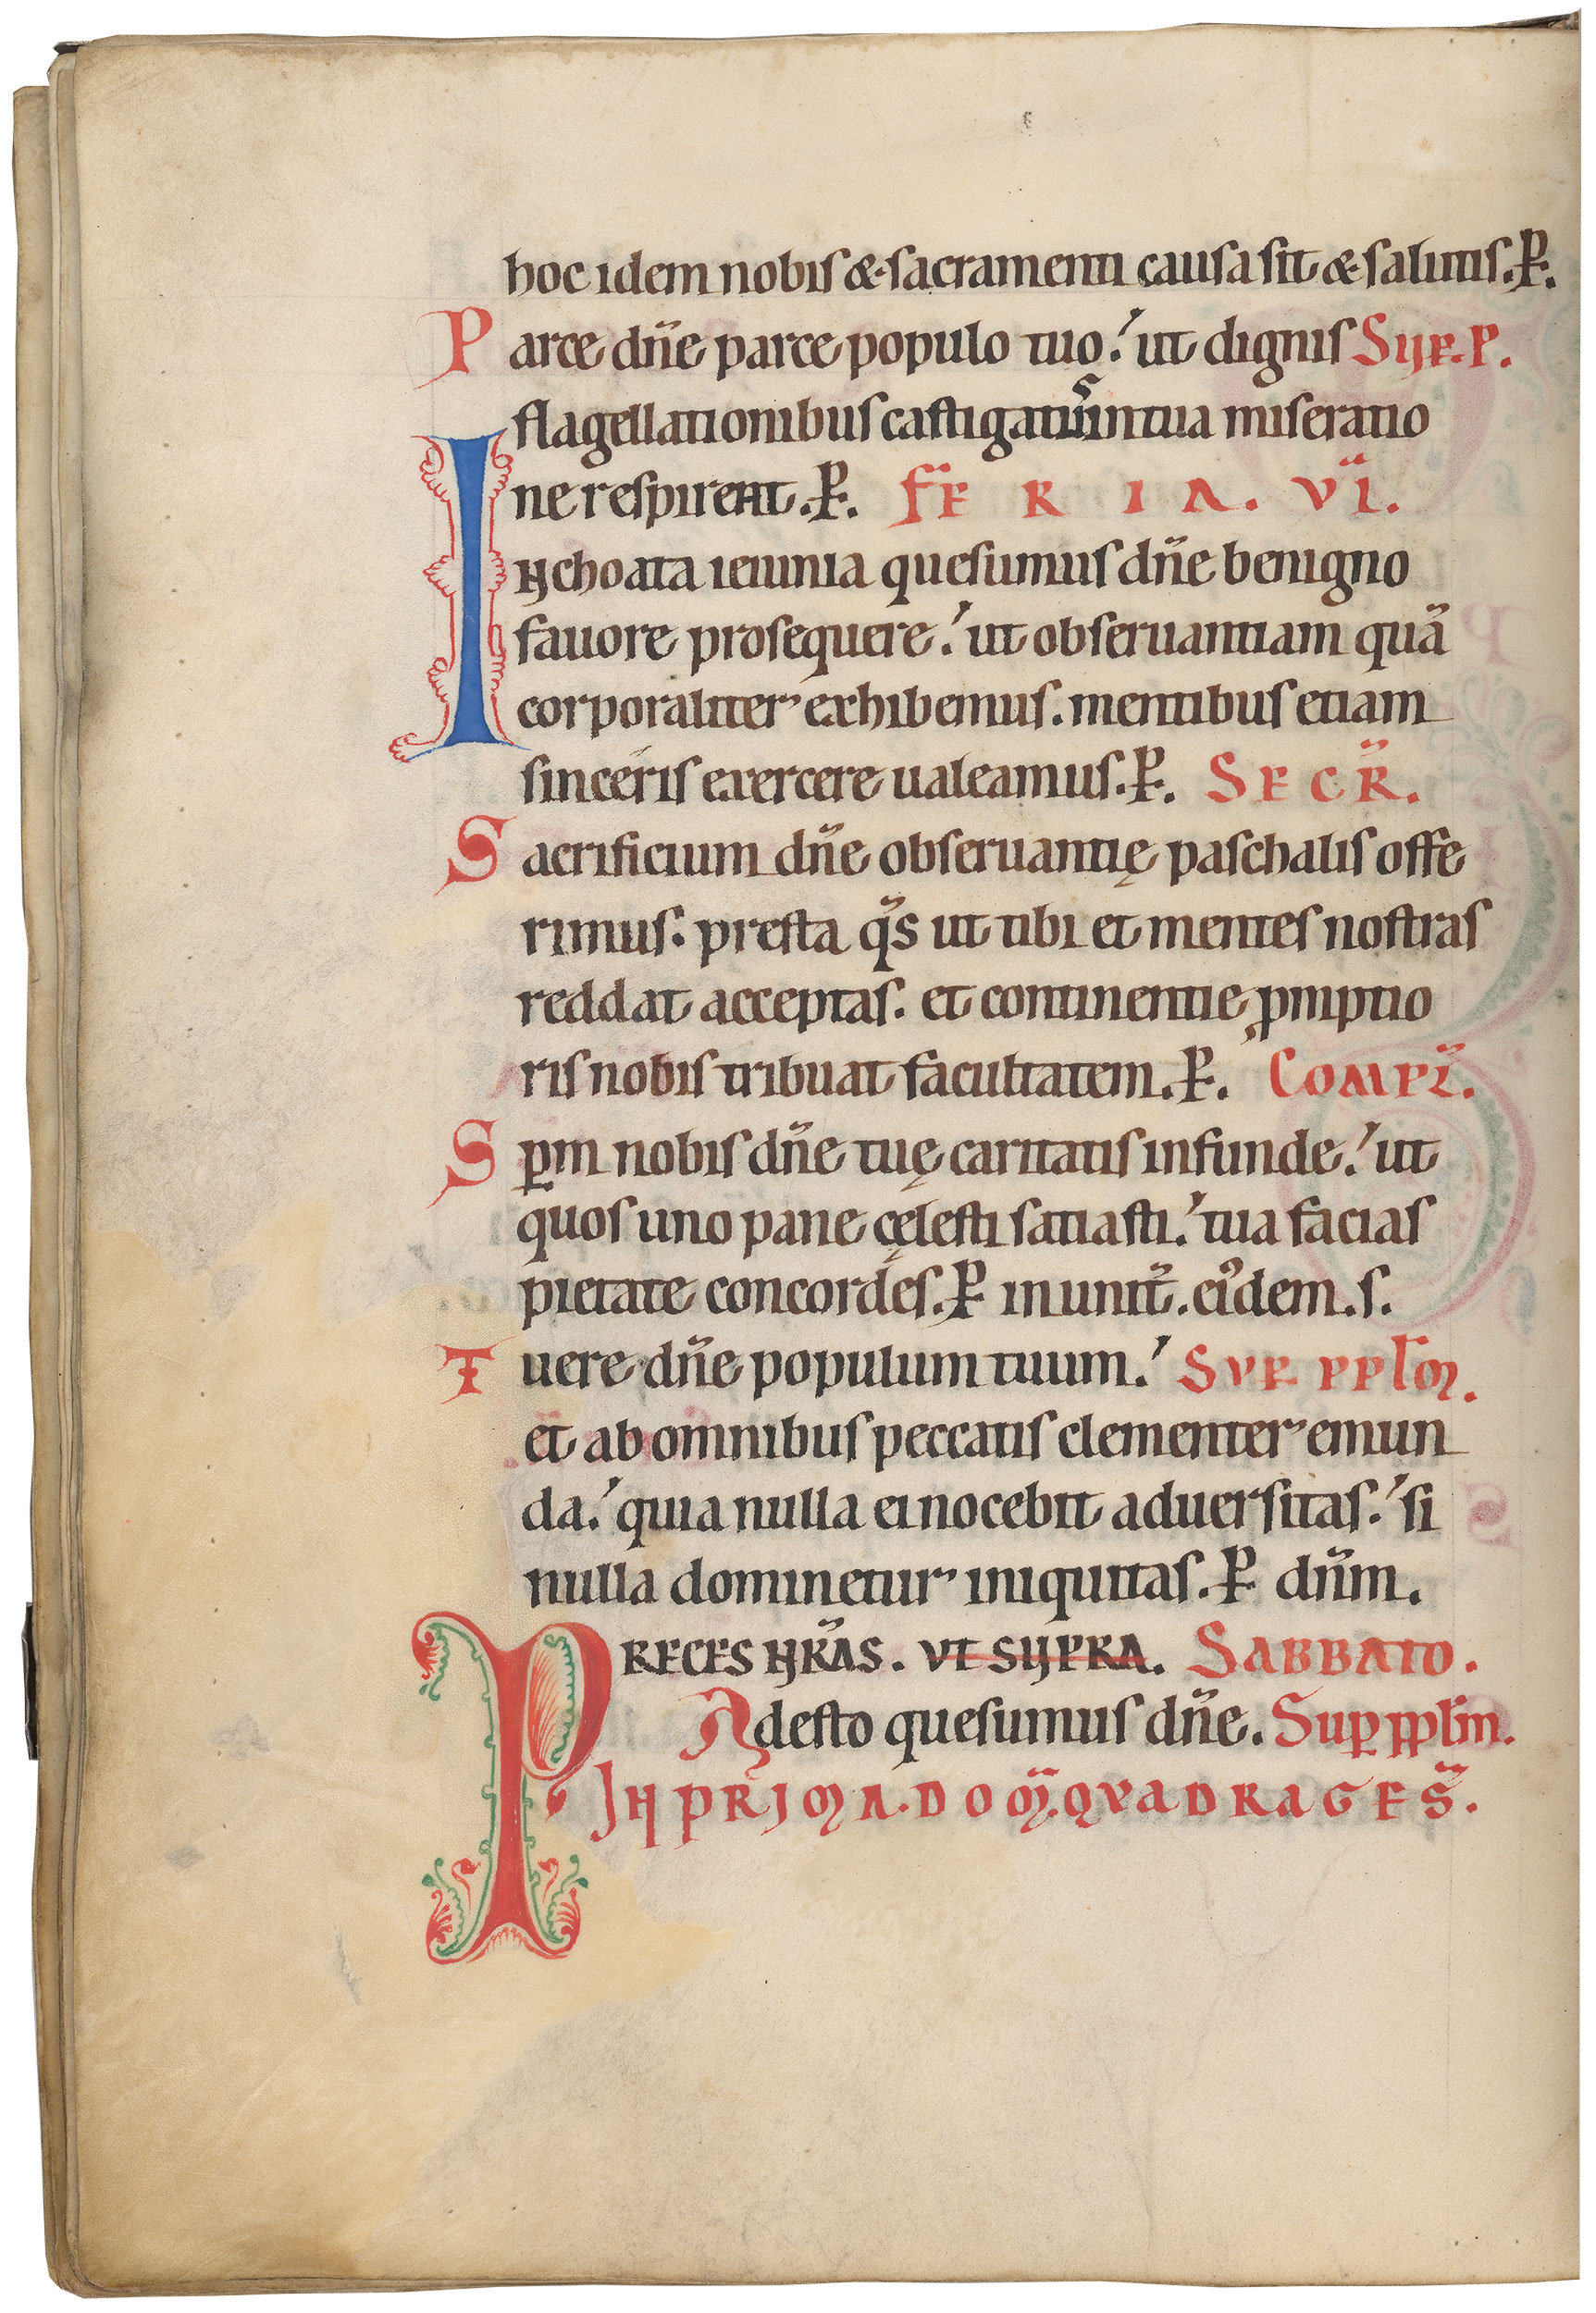 hoc idem nobis &·sacramenti causa sit &·salutis.P.
Parce dñe parce populo tuo. ut dignis Sup.P.
flagellationibus castigatus in tua miseratio
ne respirent.P. FERIA. VI.
Inchoata ieiunia quesumus dñe benigno
fauore prosequere. ut obseruantiam quā
corporaliter exhibemus. mentibus etiam
sinceris exercere ualeamus.P. SECR̄.
Sacrificium dñe obseruantię paschalis offe
rimus. presta qs̄ ut tibi et mentes nostras
reddat acceptas. et continentie ꝓmptio
ris nobis tribuat facultatem.P. COMPL̄.
Sp̄m nobis dñe tuę caritatis infunde. ut
quos uno pane cęlesti satiasti. tua facias
pietate concordes.P in unit̄. ei᾽dem.s.
Tuere dñe populum tuum. SVP PPLM̄.
et ab omnibus peccatis clementer emun
da. quia nulla ei nocebit aduersitas. si
nulla dominetur iniquitas.P dñm.
PRECES NR̄AS. VT SUPRA. SABBATO.
Adesto quesumus dñe. Suꝑ pplm̄.
IN PRIMA. DOM̄. QVADRAGES̄.